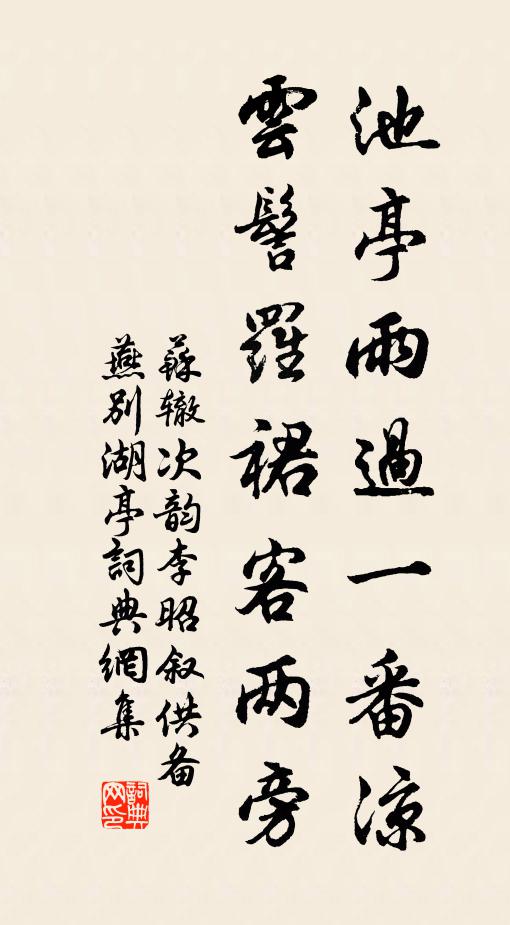 池亭雨過一番涼
雲髻羅裙客两旁
蘇辙次韵李昭叙供备
燕别湖亭詞典網集
詞典网印